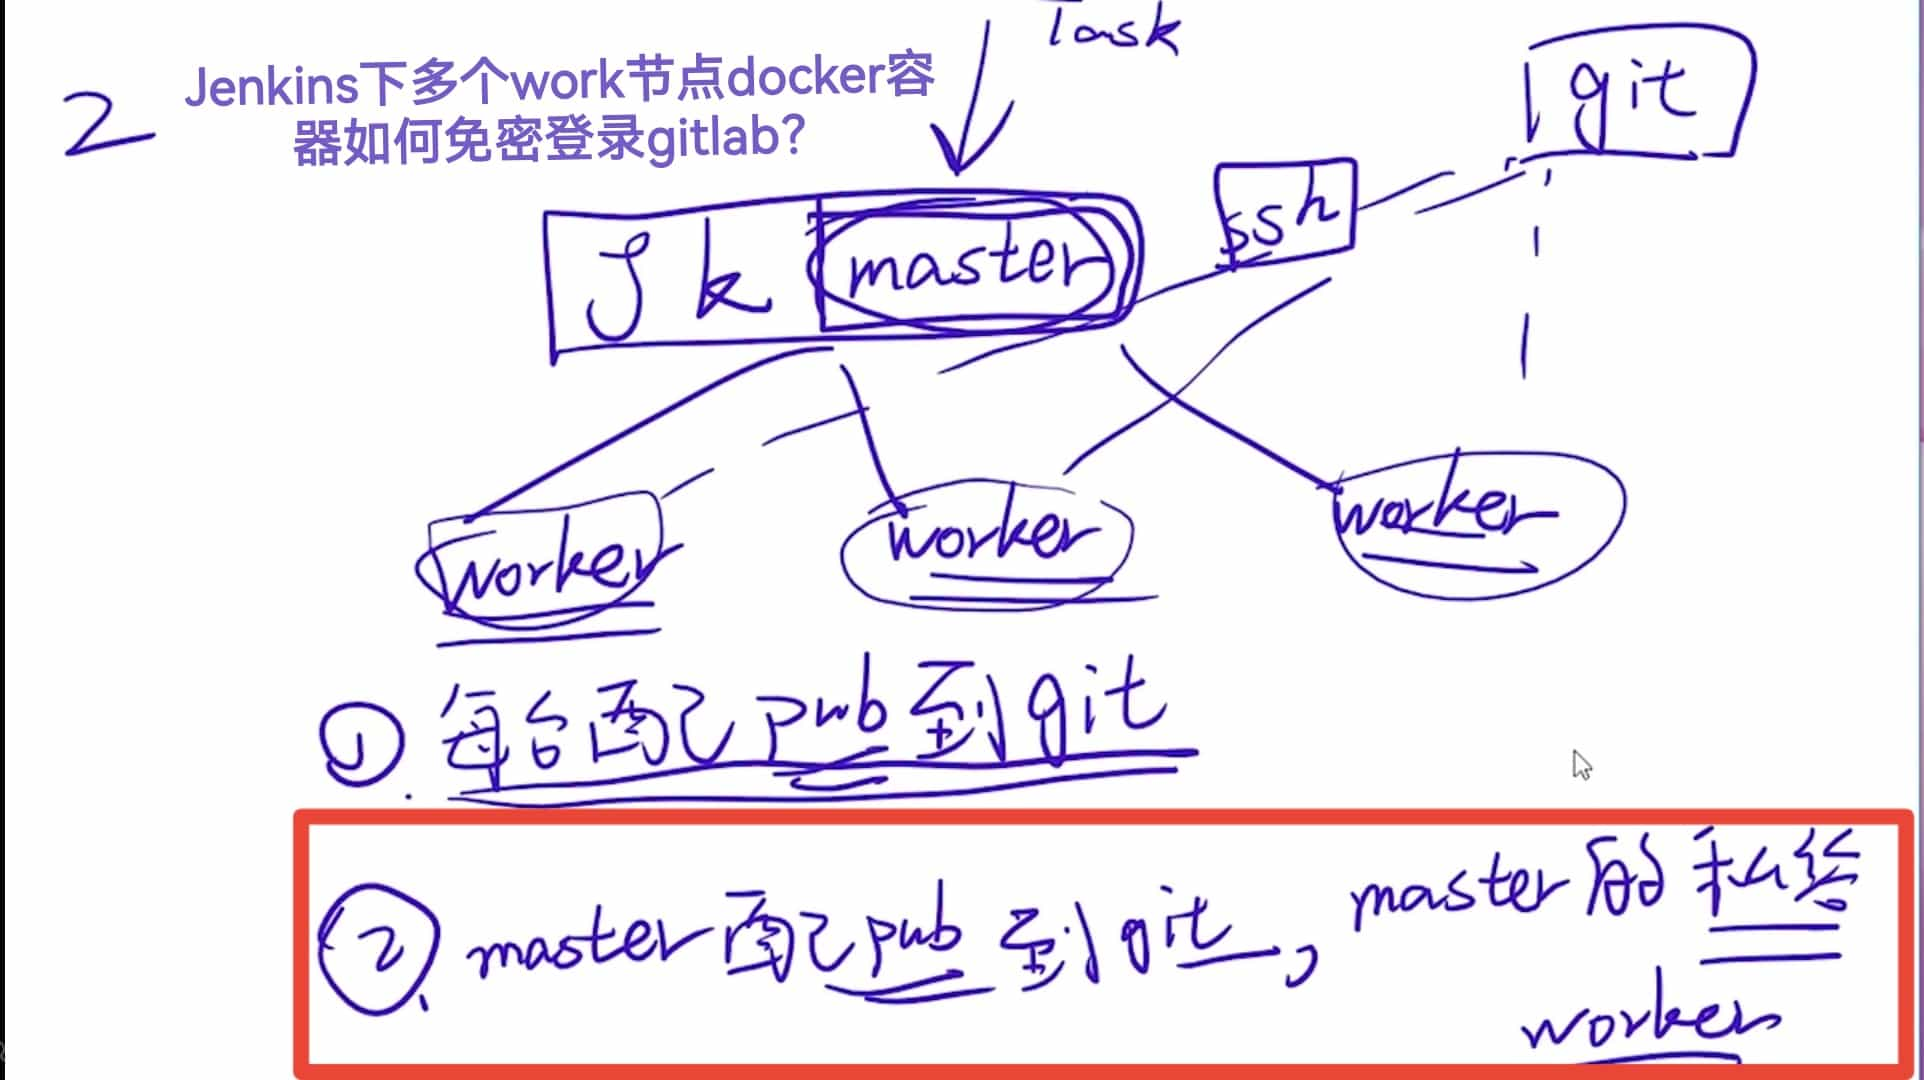 Task
git
2
Jenkins下多个work节点docker容
器如何免密登录gitlab？
ssh
Jk master
worker
worker
worker
① 每台配pub到git
② master配pub到git，master的私给
worker